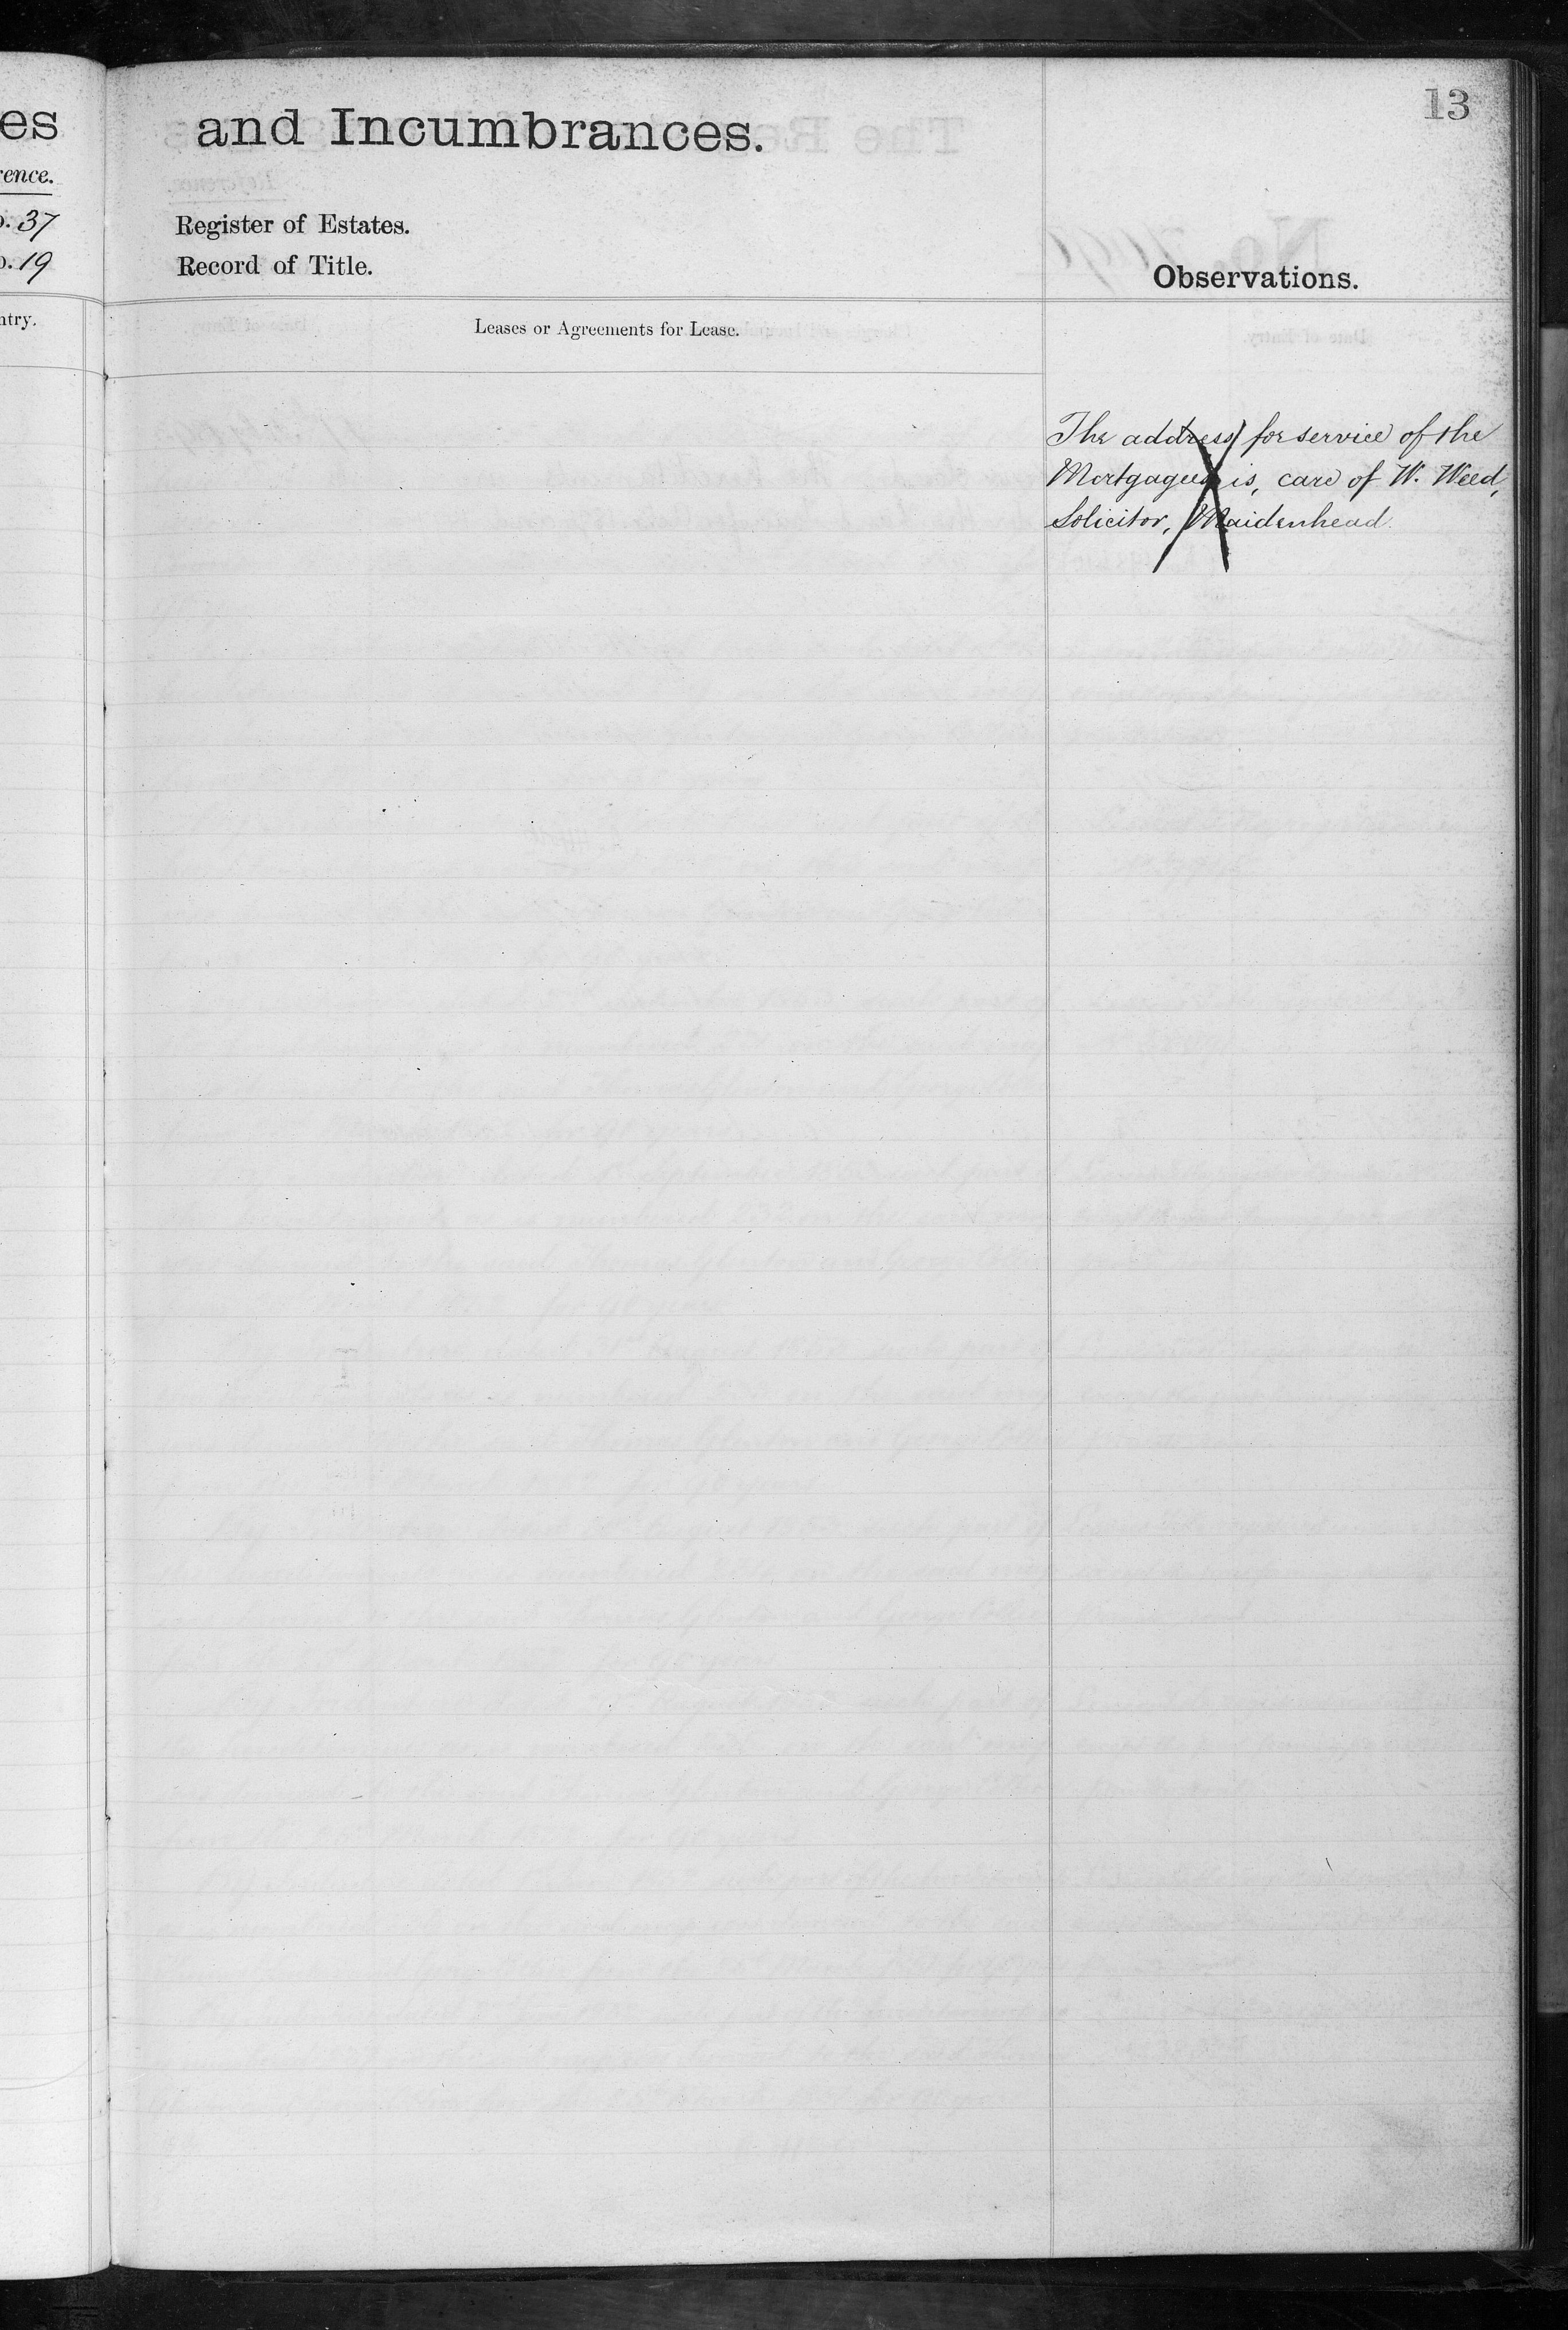 13
es and Incumbrances.
ence.
o. 37 Register of Estates.
o. 19 Record of Title.
Observations.
ntry.
Leases or Agreements for Lease.
The address for service of the
Mortgagees is, care of W. Weed,
Solicitor, Maidenhead.